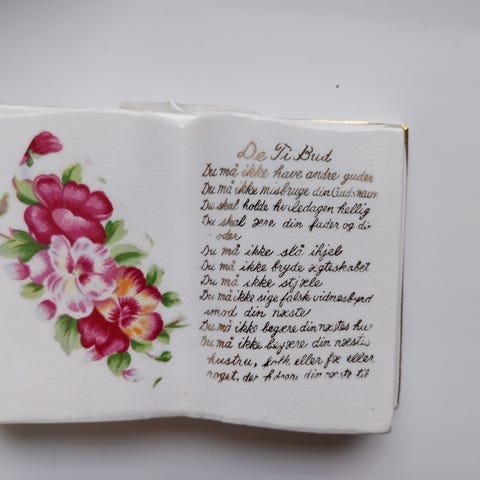 De Ti Bud
Du må ikke have andre guder
Du må ikke misbruge din Guds navn
Du skal holde hviledagen hellig
Du skal ære din fader og di
oder
Du må ikke slå ihjel
Du må ikke bryde ægteskabet
Du må ikke stjæle
Du må ikke sige falsk vidnesbyrd
imod din næste
Du må ikke begære din næstes hu
Du må ikke begjære din næstes
hustru, folk eller fæ eller
noget, der hører din næste til